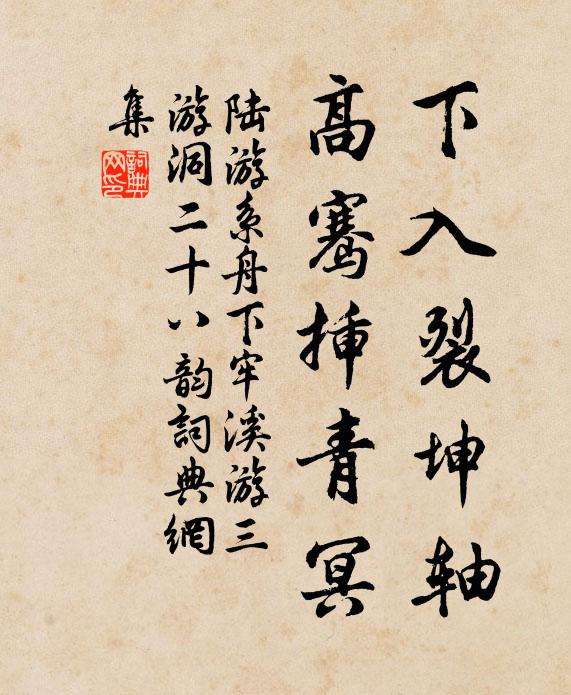 下入裂坤轴
高骞插青冥
陆游系舟下牢溪游三
游洞二十八韵词典網
集
詞典
网印